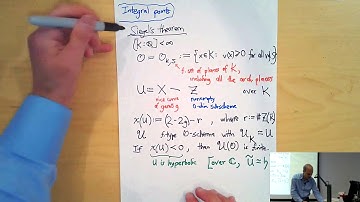 Integral points
Siegel's theorem
[K:Q] < ∞
O = O_{K,S} := {x∈K : v(x) ≥ 0 for all v∉S}
f. set of places of K,
including all the arch. places
U = X − Z over K
nice curve of genus g
nonempty 0-dim subscheme
χ(U) := (2-2g) − r, where r := #Z(K̄)
𝒰 f.type O-scheme with 𝒰_K = U
If χ(U) < 0, then 𝒰(O) is finite.
U is hyperbolic [over C, Ũ ≃ h